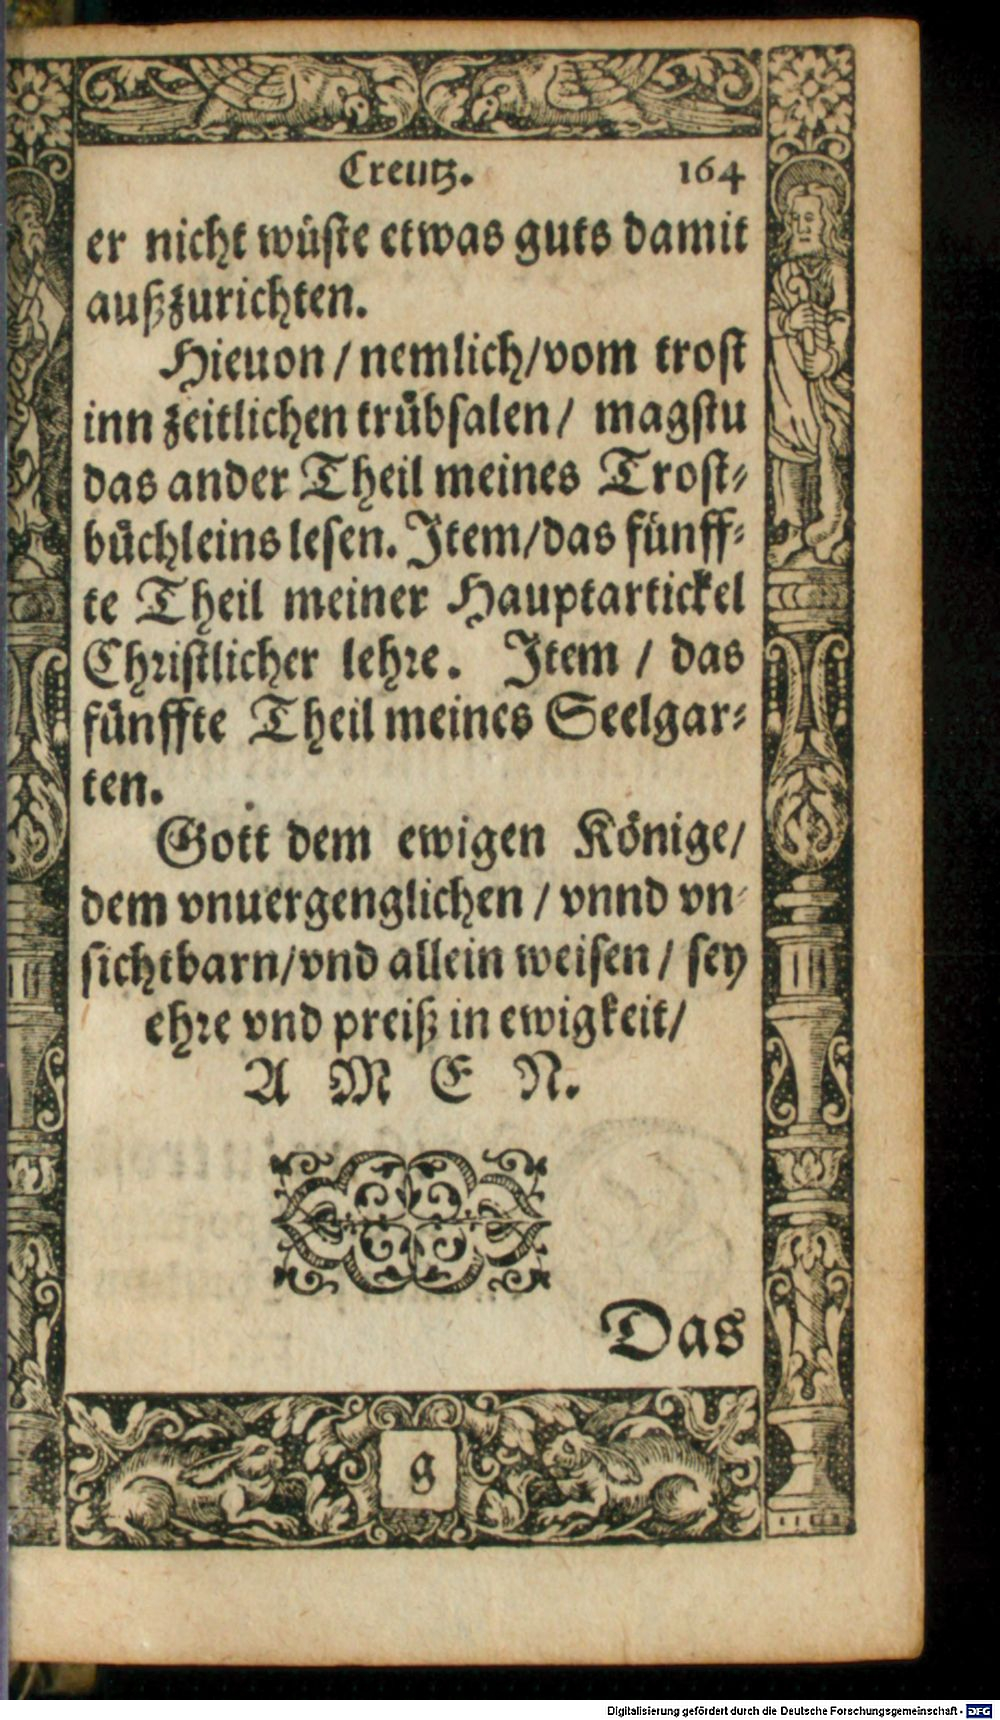 Creutz. 164
er nicht wüste etwas guts damit
außzurichten.
Hieuon / nemlich/vom trost
inn zeitlichen trübsalen/ magstu
das ander Theil meines Trost-
büchleins lesen. Item/das fünff-
te Theil meiner Hauptartickel
Christlicher lehre. Item / das
fünffte Theil meines Seelgar-
ten.
Gott dem ewigen Könige/
dem vnuergenglichen / vnnd vn-
sichtbarn/vnd allein weisen / sey
ehre vnd preiß in ewigkeit/
A M E N.
Das
g
Digitalisierung gefördert durch die Deutsche Forschungsgemeinschaft - DFG